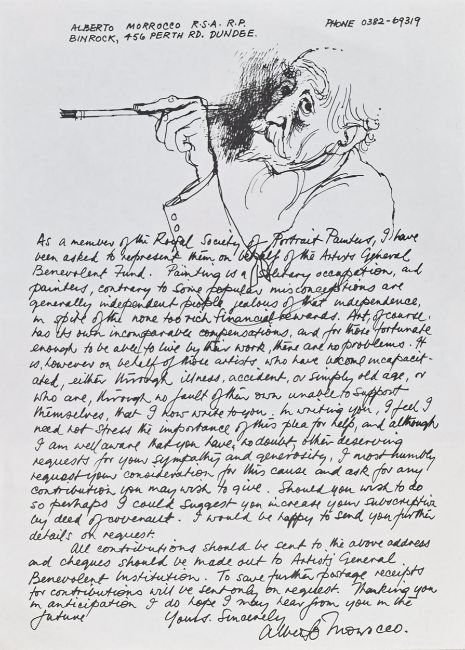 ALBERTO MORROCCO R.S.A. R.P.
BINROCK, 456 PERTH RD. DUNDEE.
PHONE 0382-69319
As a member of the Royal Society of Portrait Painters, I have
been asked to represent them, on behalf of the Artists General
Benevolent Fund. Painting is a solitary occupation, and
painters, contrary to some popular misconceptions are
generally independent people, jealous of that independence,
in spite of the none too rich financial rewards. Art, of course,
has its own incomparable compensations, and for those fortunate
enough to be able to live by their work, there are no problems. It
is, however on behalf of those artists, who have become incapacit-
ated, either through illness, accident, or simply old age, or
who are, through no fault of their own unable to support
themselves, that I now write to you. In writing you, I feel I
need not stress the importance of this plea for help, and although
I am well aware that you have, no doubt, other deserving
requests for your sympathy and generosity, I most humbly
request your consideration for this cause and ask for any
contribution you may wish to give. Should you wish to do
so perhaps I could suggest you increase your subscription
by deed of covenant. I would be happy to send you further
details on request.
All contributions should be sent to the above address
and cheques should be made out to Artists General
Benevolent Institution. To save further postage receipts
for contributions will be sent only on request. Thanking you
in anticipation I do hope I may hear from you in the
future Yours Sincerely
Alberto Morrocco.